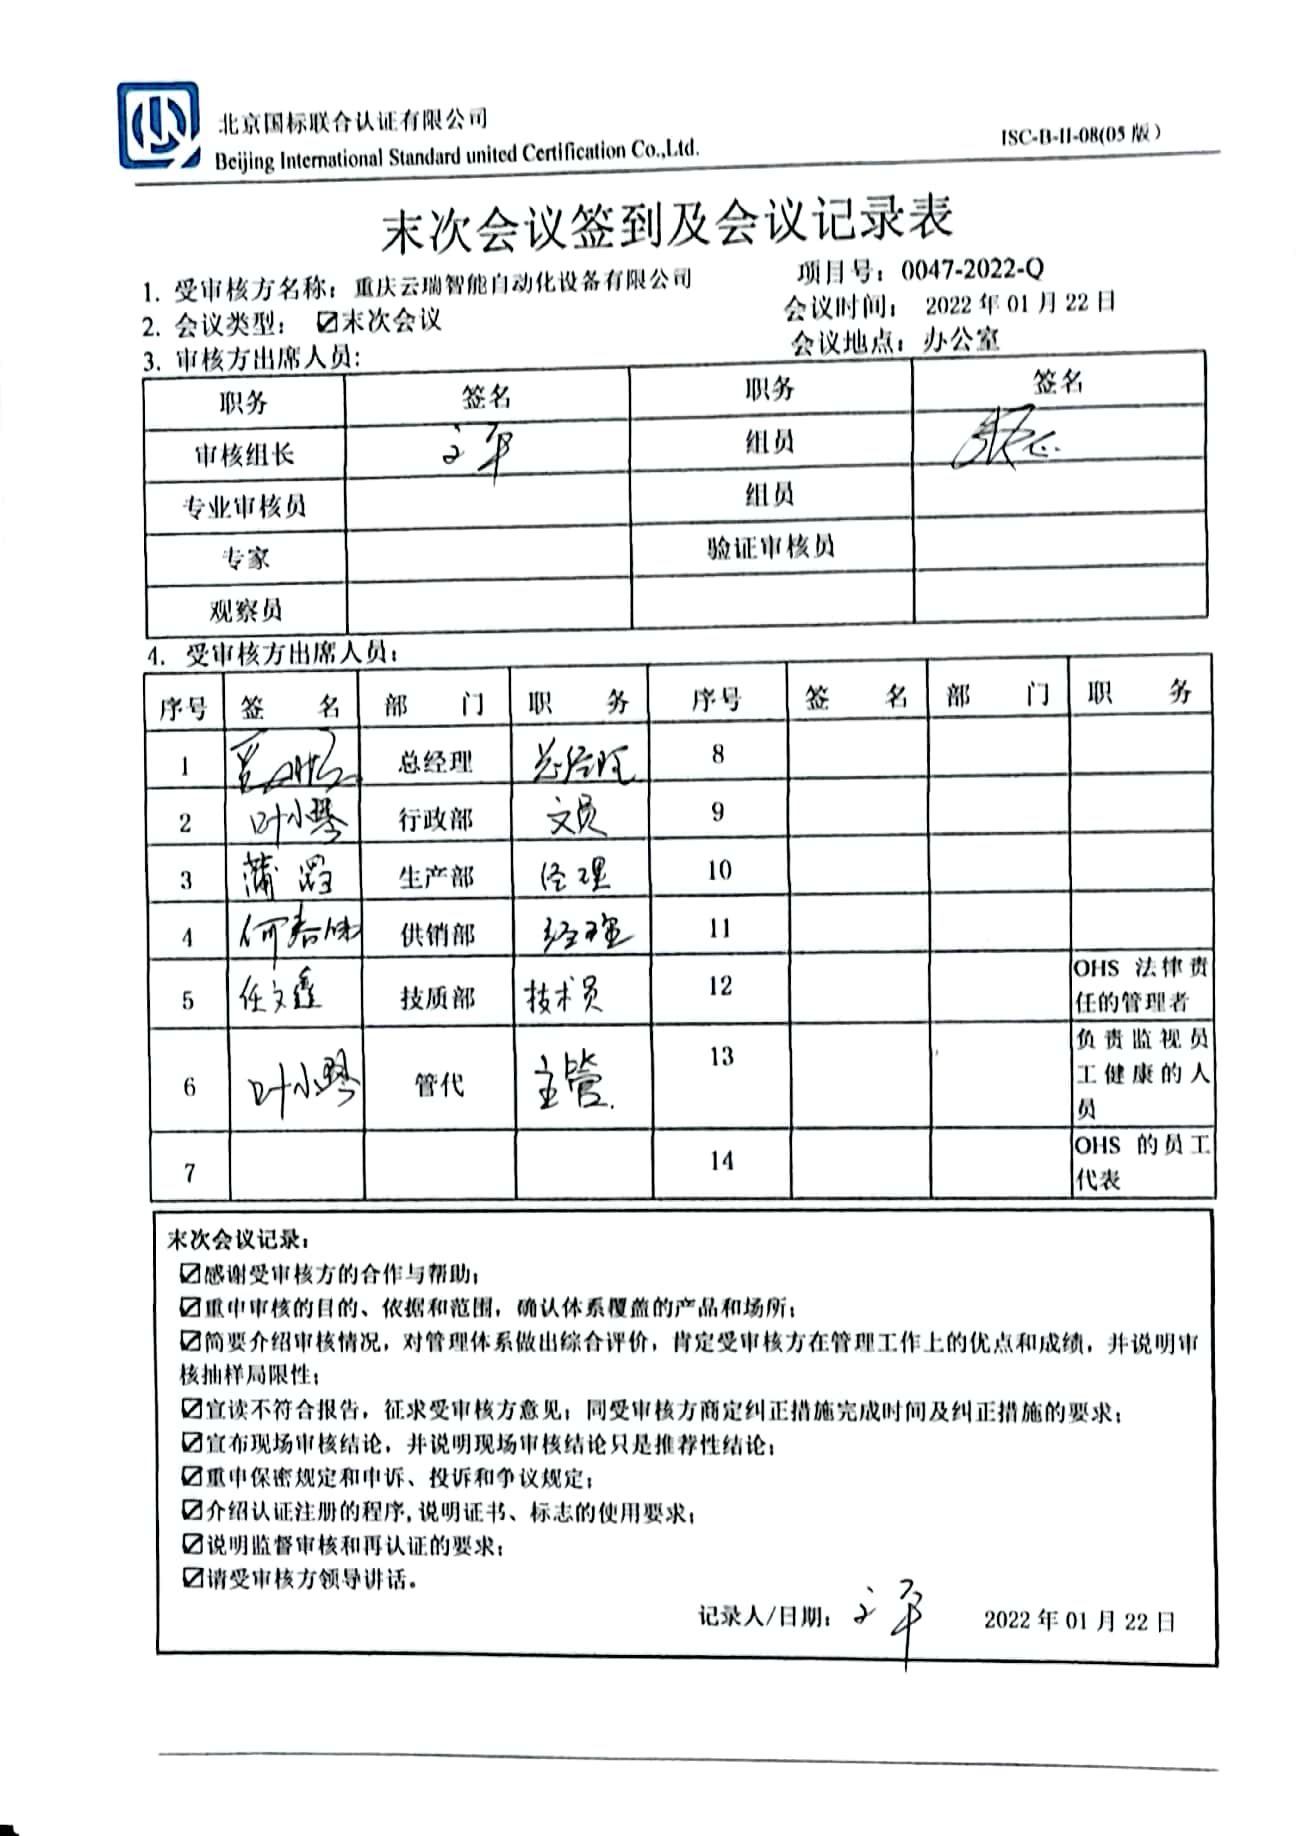 北京国标联合认证有限公司
Beijing International Standard united Certification Co.,Ltd.
ISC-B-II-08(05版)
末次会议签到及会议记录表
1. 受审核方名称：重庆云瑞智能自动化设备有限公司 项目号：0047-2022-Q
2. 会议类型： ☑末次会议 会议时间： 2022 年 01 月 22 日
3. 审核方出席人员: 会议地点：办公室
职务 签名 职务 签名
审核组长 文平 组员
专业审核员 组员
专家 验证审核员
观察员
4. 受审核方出席人员：
序号 签 名 部 门 职 务 序号 签 名 部 门 职 务
1 总经理 总经理 8
2 叶小琴 行政部 文员 9
3 蒲 生产部 经理 10
4 何春 供销部 经理 11
5 任文鑫 技质部 技术员 12 OHS 法律责
任的管理者
6 叶小琴 管代 主管. 13 负责监视员
工健康的人
员
7 14 OHS 的员工
代表
末次会议记录：
☑感谢受审核方的合作与帮助；
☑重申审核的目的、依据和范围，确认体系覆盖的产品和场所；
☑简要介绍审核情况，对管理体系做出综合评价，肯定受审核方在管理工作上的优点和成绩，并说明审
核抽样局限性；
☑宣读不符合报告，征求受审核方意见；同受审核方商定纠正措施完成时间及纠正措施的要求；
☑宣布现场审核结论，并说明现场审核结论只是推荐性结论；
☑重申保密规定和申诉、投诉和争议规定；
☑介绍认证注册的程序,说明证书、标志的使用要求；
☑说明监督审核和再认证的要求；
☑请受审核方领导讲话。
记录人/日期：文平 2022 年 01 月 22 日